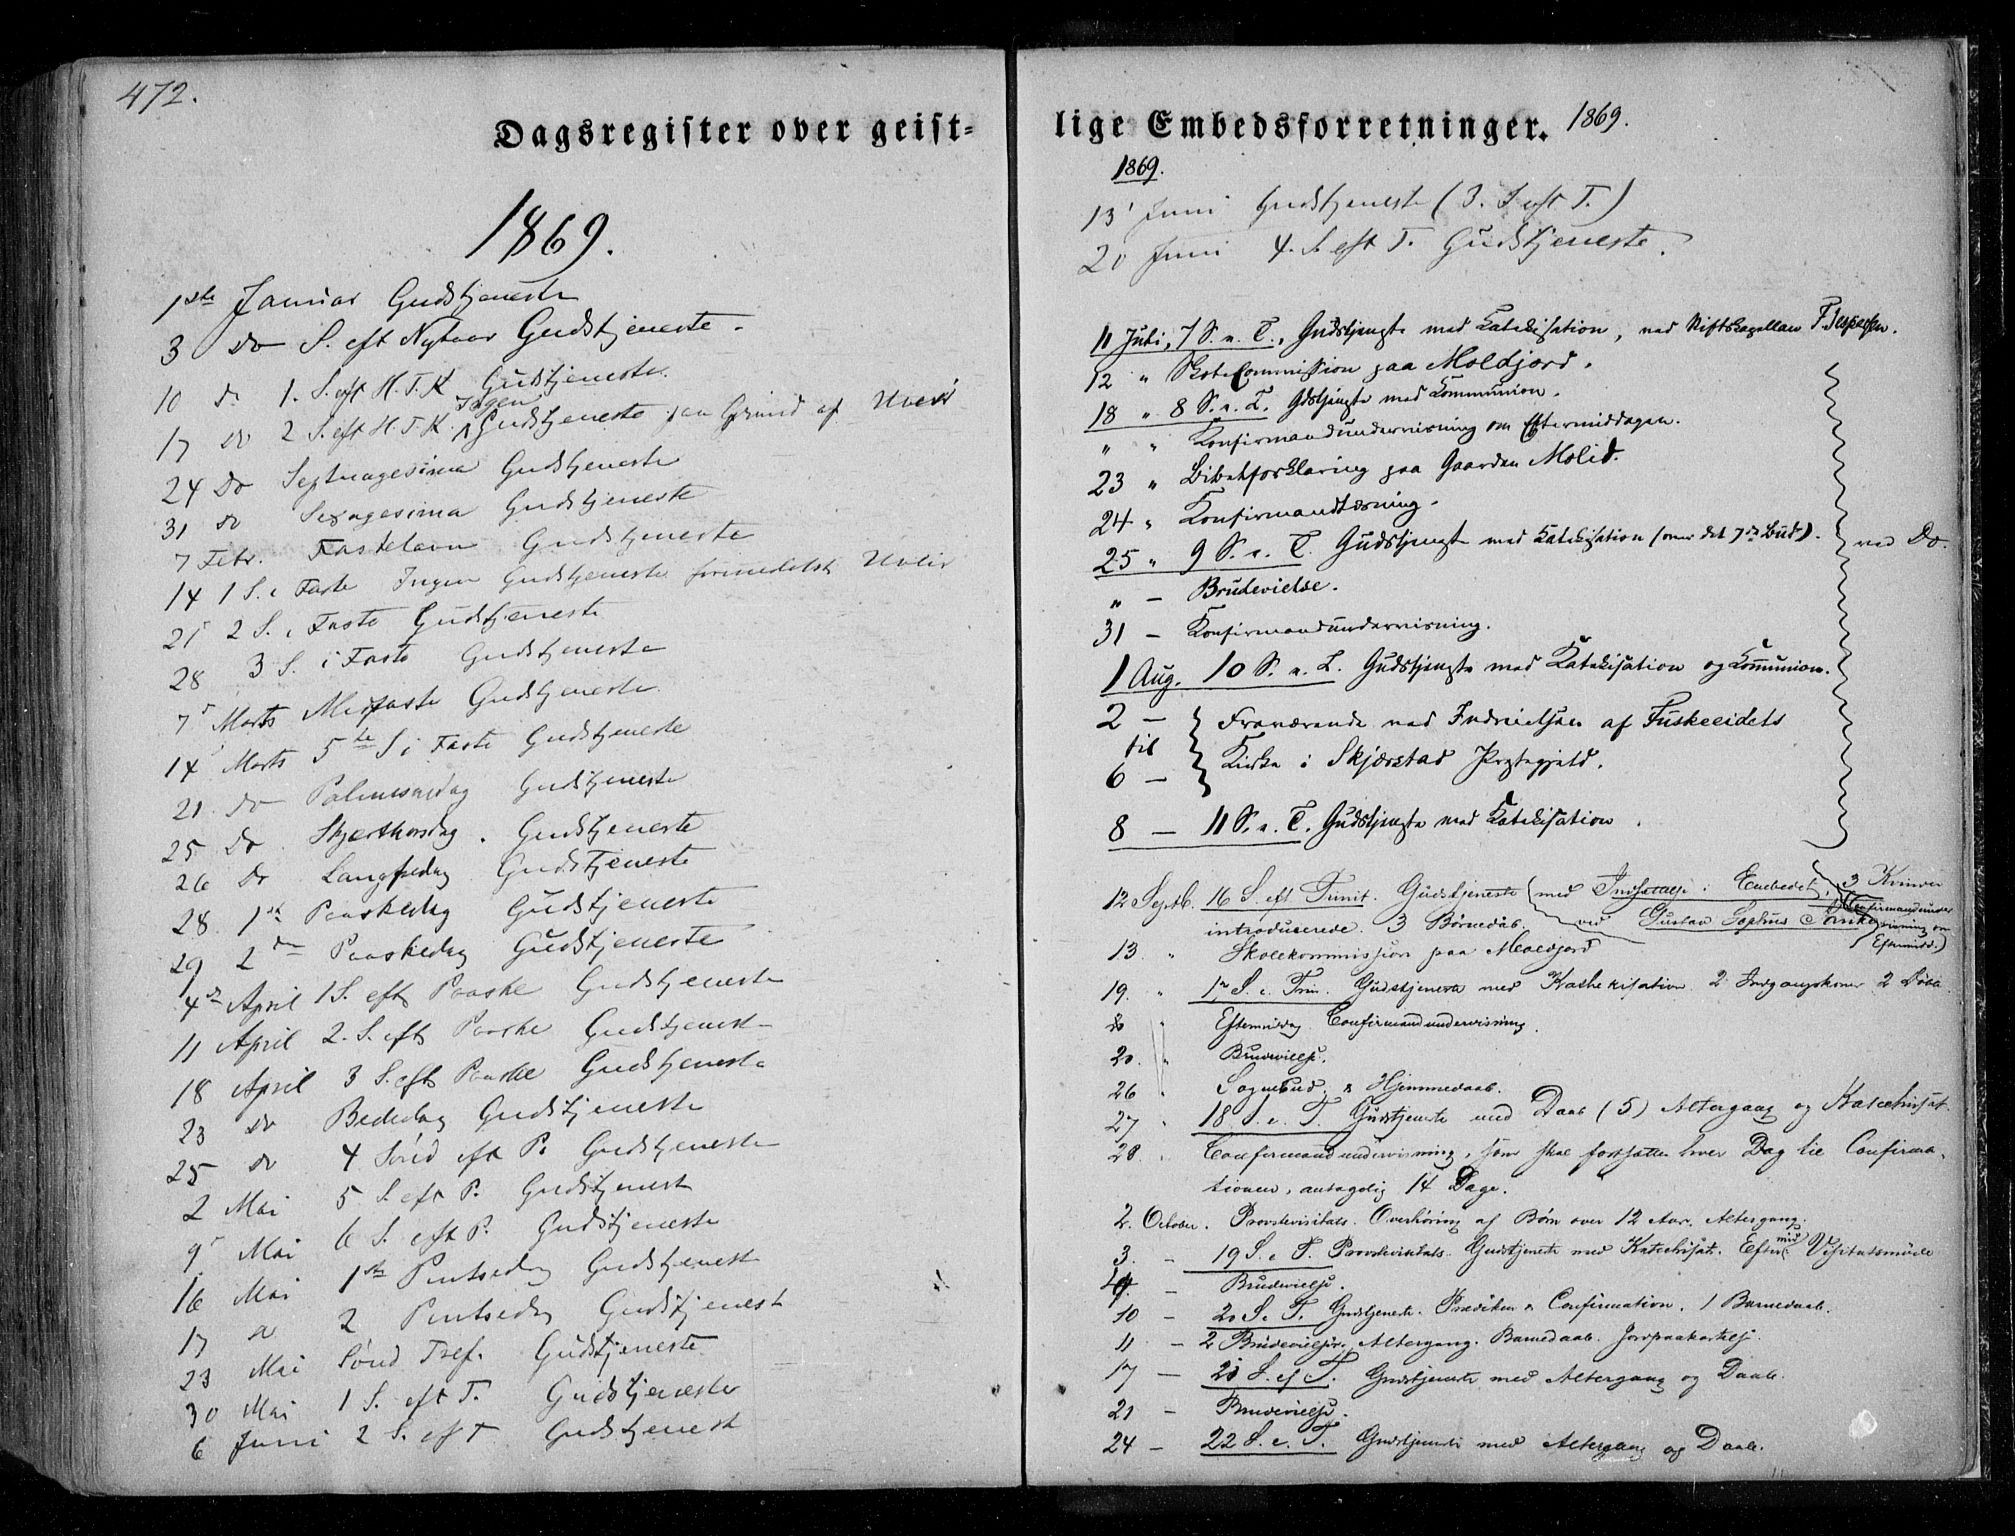 472.
Dagsregister over geist-
1869.
1ste Januar Gudstjeneste
3 do S. eft Nytaar Gudstjeneste.
10 do 1. S. eft H. T. K Gudstjeneste.
17 do 2 S. eft H. T. K. Ingen Gudstjeneste paa Grund af Uveir
24 Do Septuagesima Gudstjeneste
31 do Sexagesima Gudstjeneste
7 Febr. Fastelavn Gudstjeneste
14 1 S. i Faste Ingen Gudstjeneste formedelst Uveir
21 2 S. i Faste Gudstjeneste
28 3 S. i Faste Gudstjeneste
7 Marts Midfaste Gudstjeneste
14 Marts 5te S i Faste Gudstjeneste
21. do Palmesøndag Gudstjeneste
25 Do Skjærthorsdag. Gudstjeneste
26 Do Langfredag Gudstjeneste
28 1ste Paaskedag Gudstjeneste
29 2den Paaskedag Gudstjeneste
4de April 1 S. eft Paaske Gudstjeneste
11 April 2. S. eft Paaske Gudstjeneste
18 April 3 S. eft Paaske Gudstjeneste
23 do Bededag Gudstjeneste
25 do 4 Sønd eft P. Gudstjeneste
2 Mai 5 S. eft P. Gudstjenest
9 Mai 6 S. eft P. Gudstjeneste
16 Mai 1ste Pintsedag Gudstjenest
17 do 2 Pintsedag Gudstjenest
23 Mai Sønd Tref. Gudstjeneste
30 Mai 1 S. eft T. Gudstjeneste
6 Juni 2 S. eft T Gudstjenest
lige Embedsforretninger. 1869.
1869.
13 Juni Gudstjeneste (3. S eft T.)
20 Juni 4. S. eft T. Gudstjeneste.
11 Juli, 7 S. e. T., Gudstjeneste med Katekisation, ved Stiftskapellan F. Jespersen.
12 " Skolecommission paa Moldjord.
18 " 8 S. e. T. Gdstjeneste med Kommunion.
" " Konfirmandundervisning om Eftermiddagen.
23 " Bibelforklaring paa Gaarden Molid.
24 " Konfirmandlæsning.
25 " 9 S. e. T. Gudstjeneste med Katekisation (over det 7de Bud). ved Do.
" – Brudevielse.
31 – Konfirmandundervisning.
1 Aug. 10 S. e. T. Gudstjeneste med Katekisation og Kommunion.
2 – Fraværende ved Indvielsen af Fuskeeidets
til
6 – Kirke i Skjærstad Præstegjeld.
8 – 11 S. e. T. Gudstjeneste med Katekisation.
12 Septb. 16 S. eft Trinit. Gudstjeneste med Indsættelse i Embedet, 3 Kvinder
introducerede. 3 Børnedåb. ved Gustav Sophus (Confirmandunder
visning om
Eftermidd.)
13. " Skolekommission paa Moldjord
19. " 17 S. e. Trin. Gudstjeneste med Kathekisation 2 Indgangskoner 2 Døbte
" Eftermiddag Confirmandundervisning.
20. " Brudevielse.
26 " Sognebud. & Hjemmedaab.
27 " 18 S. e. T. Gudstjeneste med Daab (5) Altergang og Katechisat.
28 " Confirmandundervisning, som skal fortsættes hver Dag til Confirma-
tionen, antagelig 14 Dage.
2. October. Provstevisitats. Overhøring af Børn over 12 Aar. Altergang.
3. – 19 S. e T. Provstevisitats. Gudstjeneste med Katechisat. Efterm. Visitatsmøde
4. – Brudevielse.
10 – 20 S. e. T. Gudstjeneste. Prædiken & Confirmation. 1 Barnedaab.
11 – 2 Brudevielser, Altergang. Barnedaab. Jordpaakastelse.
17 – 21 S. ef T. Gudstjeneste med Altergang og Daab.
21 – Brudevielse.
24 – 22 S. e. T. Gudstjeneste med Altergang og Daab.